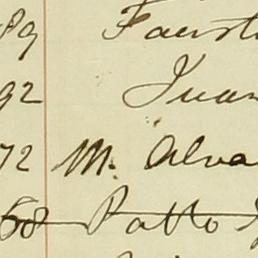 89 Faust
92 Juan
72 M. Alva
68 Patto